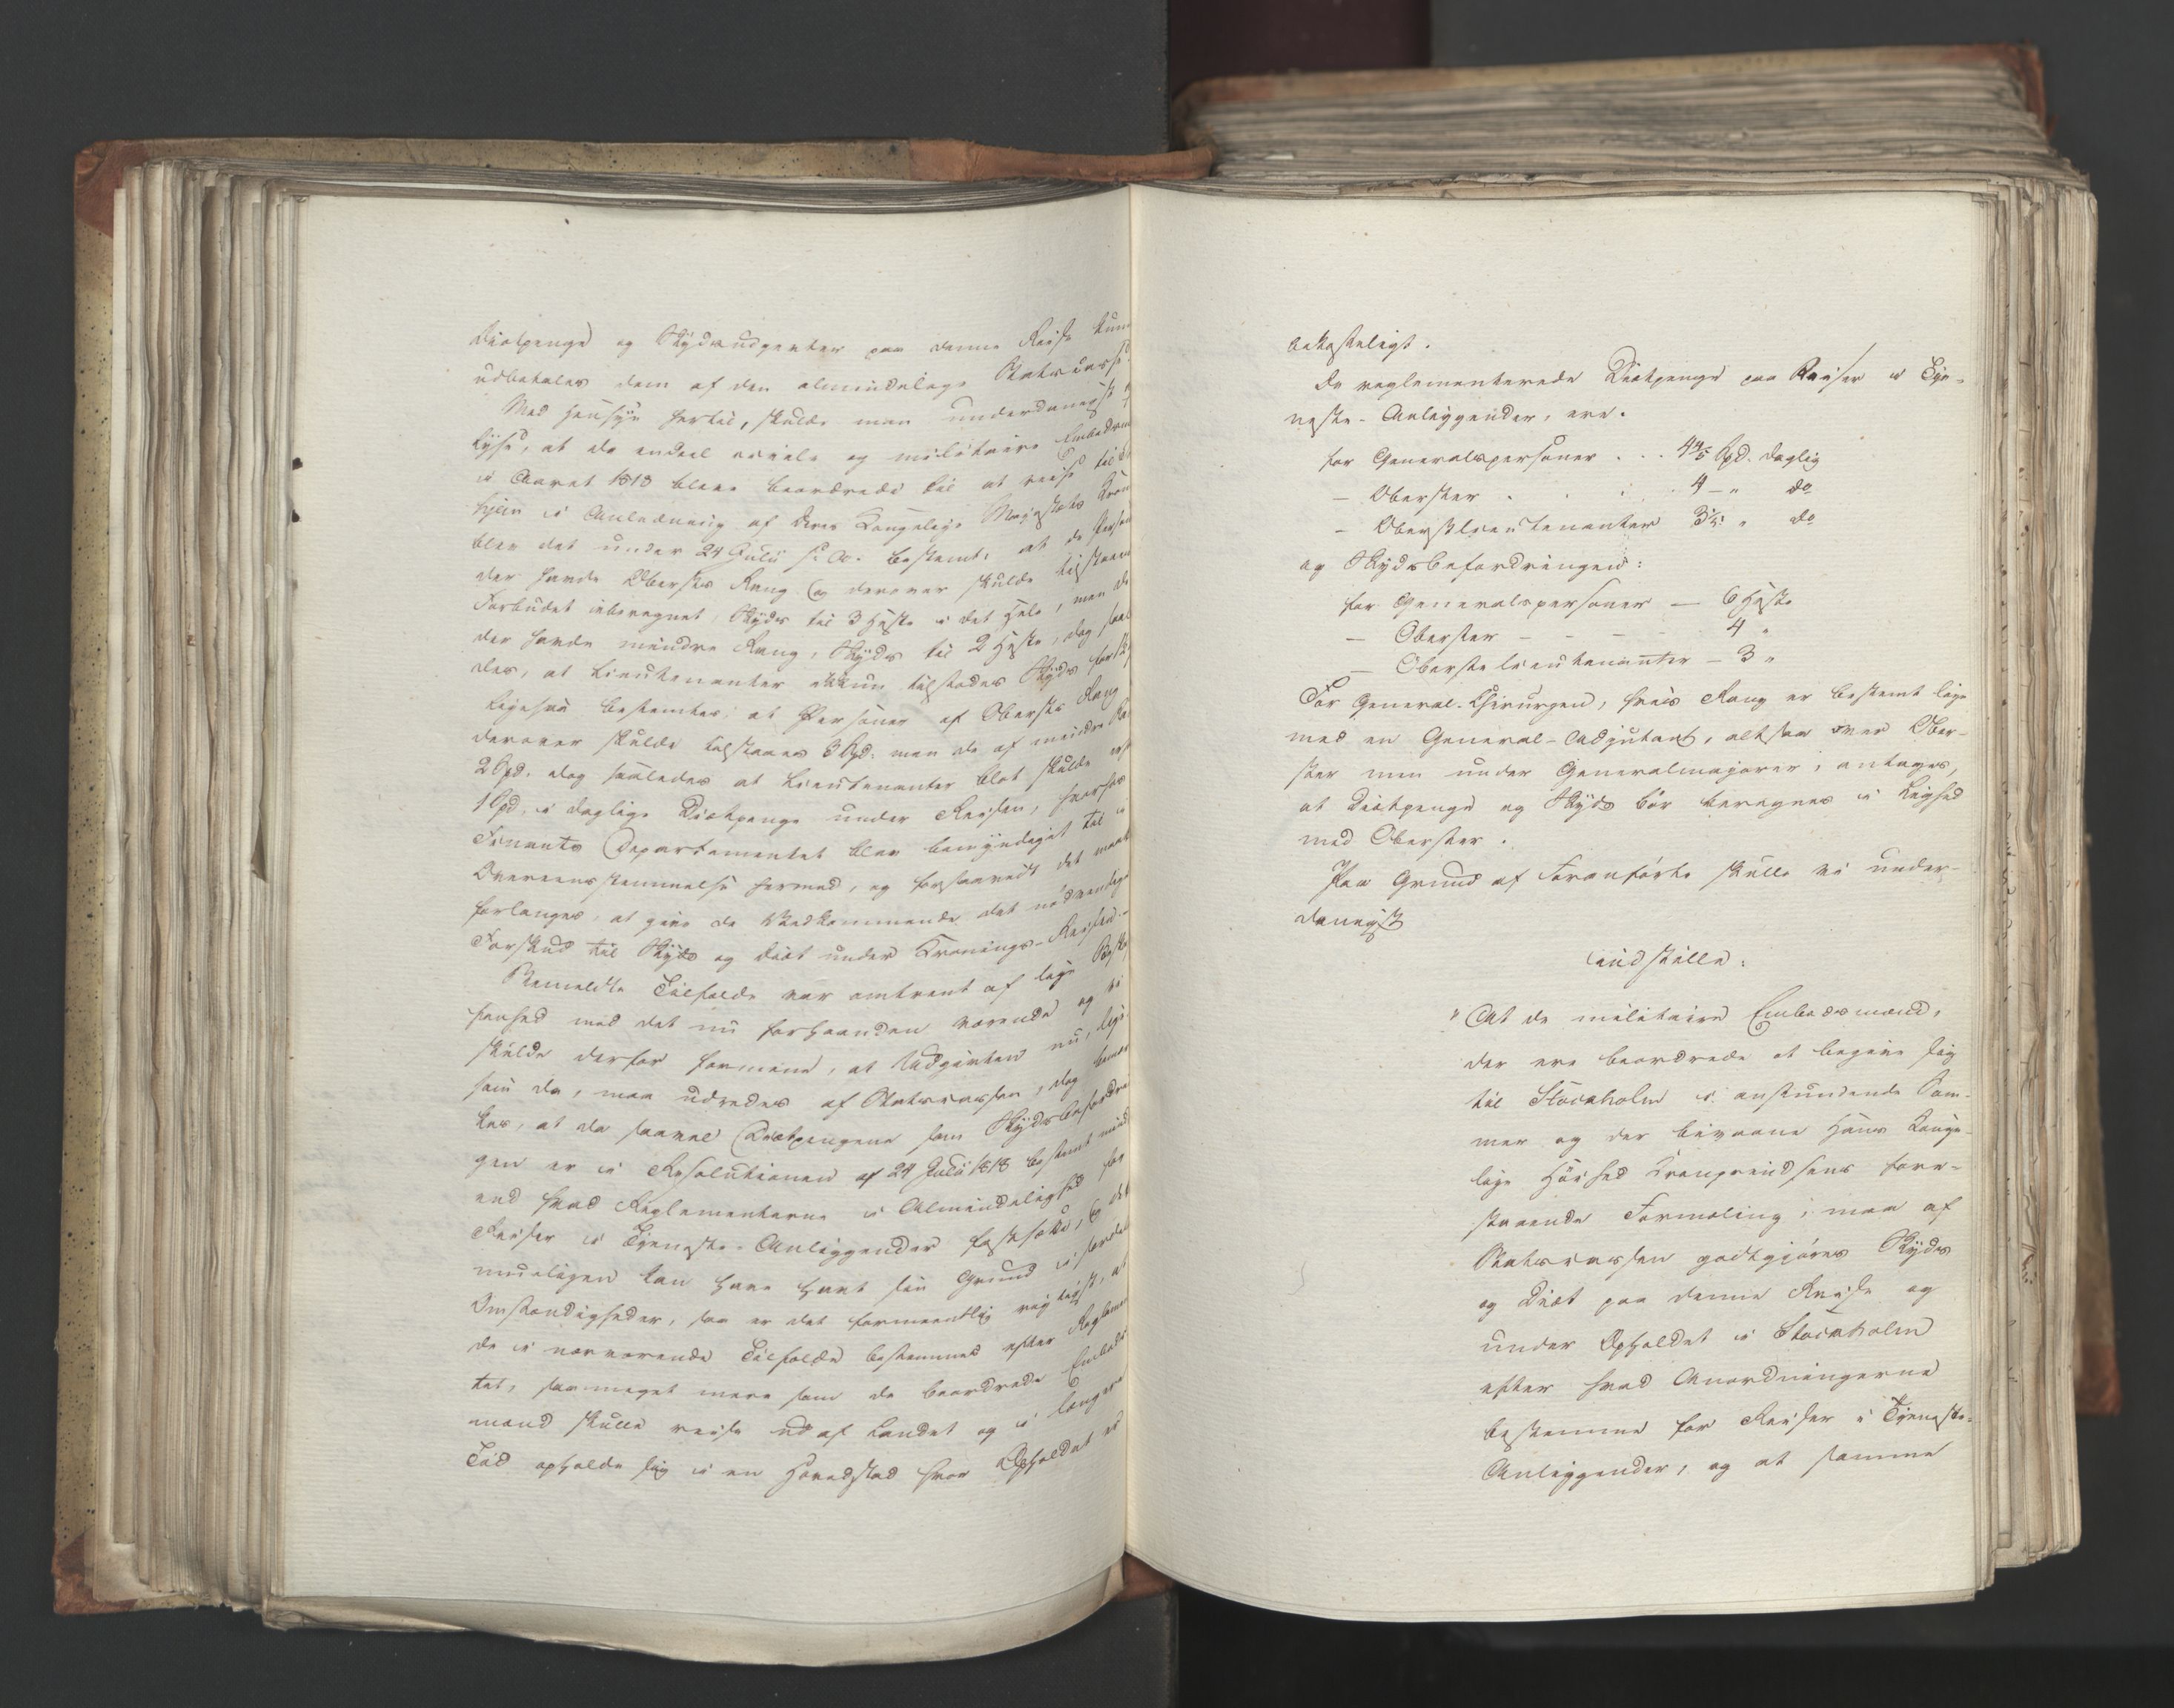 Diætpenge og Skydsudgivter paa denne Reise kun
udbetales dem af den almindelige Statscasse.
Med Hensyn hertil, skulde man underdanigst
lyse, at da endeel civile og militaire Embedsm
i Aaret 1818 bleve beordrede til at reise til
hjem i Anledning af Deres Kongelige Majestæts Kron
blev det under 24 Julii s. A. bestemt, at de Person
der havde Obersts Rang og derover skulde tilstaaes
Forbudet iberegnet, Skyds til 3 Heste i det Hele, men de
der havde mindre Rang, Skyds til 2 Heste, dog saal
des, at Lieutenanter ikkun tilstodes Skyds for
Ligesaa bestemtes, at Personer af Obersts Rang
derover skulde tilstaaes 3 Spd. men de af mindre Ra
2 Spd. dog saaledes at Lieutenanter blot skulde
1 Spd. i daglige Diætpenge under Reisen, hvorhos
Finants Departementet blev bemyndiget til i
Overeensstemmelse hermed, og forsaavidt det maat
forlanges, at give de Vedkommende det nødvendige
Forskud til Skyds og Diæt under Kronings-Reisen.
Bemeldte Tilfælde var omtrent af lige Besk
fenhed med det nu forhaanden værende og vi
skulde derfor formene, at Udgivten nu, lige
som da, maa udredes af Statscassen, dog bemær
kes, at da saavel Diætpengene som Skydsbefordrin
gen er i Resolutionen af 24 Julii 1818 bestemt mind
end hvad Reglementerne i Almindelighed for
Reiser i Tjeneste-Anliggender fastsætte, og det
mueligen kan have havt sin Grund i særdel
Omstændigheder, saa er det formeentlig rigtigst, at
de i nærværende Tilfælde bestemmes efter Reglemen
tet, saameget mere som de beordrede Embeds
mænd skulle reise ud af Landet og i længere
Tid opholde sig i en Hovedstad hvor Opholdet er
bekosteligt.
De reglementerede Diætpenge paa Reiser i Tje-
neste-Anliggender, ere.
for Generalspersoner . . . 4 4/5 Spd. daglig
— Oberster . . . . 4 — " do
— Oberstlieutenanter 3 1/5 " do
og Skydsbefordringen:
for Generalspersoner — 6 Heste
— Oberster - - - - 4 "
— Oberstelieutenanter — 3 "
For General-Chirurgen, hvis Rang er bestemt lige
med en General-Adjutant, altsaa over Ober-
ster men under Generalmajorer, antages,
at Diætpenge og Skyds bör beregnes i Lighed
med Oberster.
Paa Grund af Foranførte skulle vi under-
danigst
indstille:
"At de militaire Embedsmænd,
der ere beordrede at begive sig
til Stockholm i anstundende Som-
mer og der bivaane Hans Konge-
lige Höihed Kronprindsens fore-
staaende Formæling, maa af
Statscassen godtgjøres Skyds
og Diæt paa denne Reise og
under Opholdet i Stockholm
efter hvad Anordningerne
bestemme for Reiser i Tjeneste-
Anliggender, og at samme